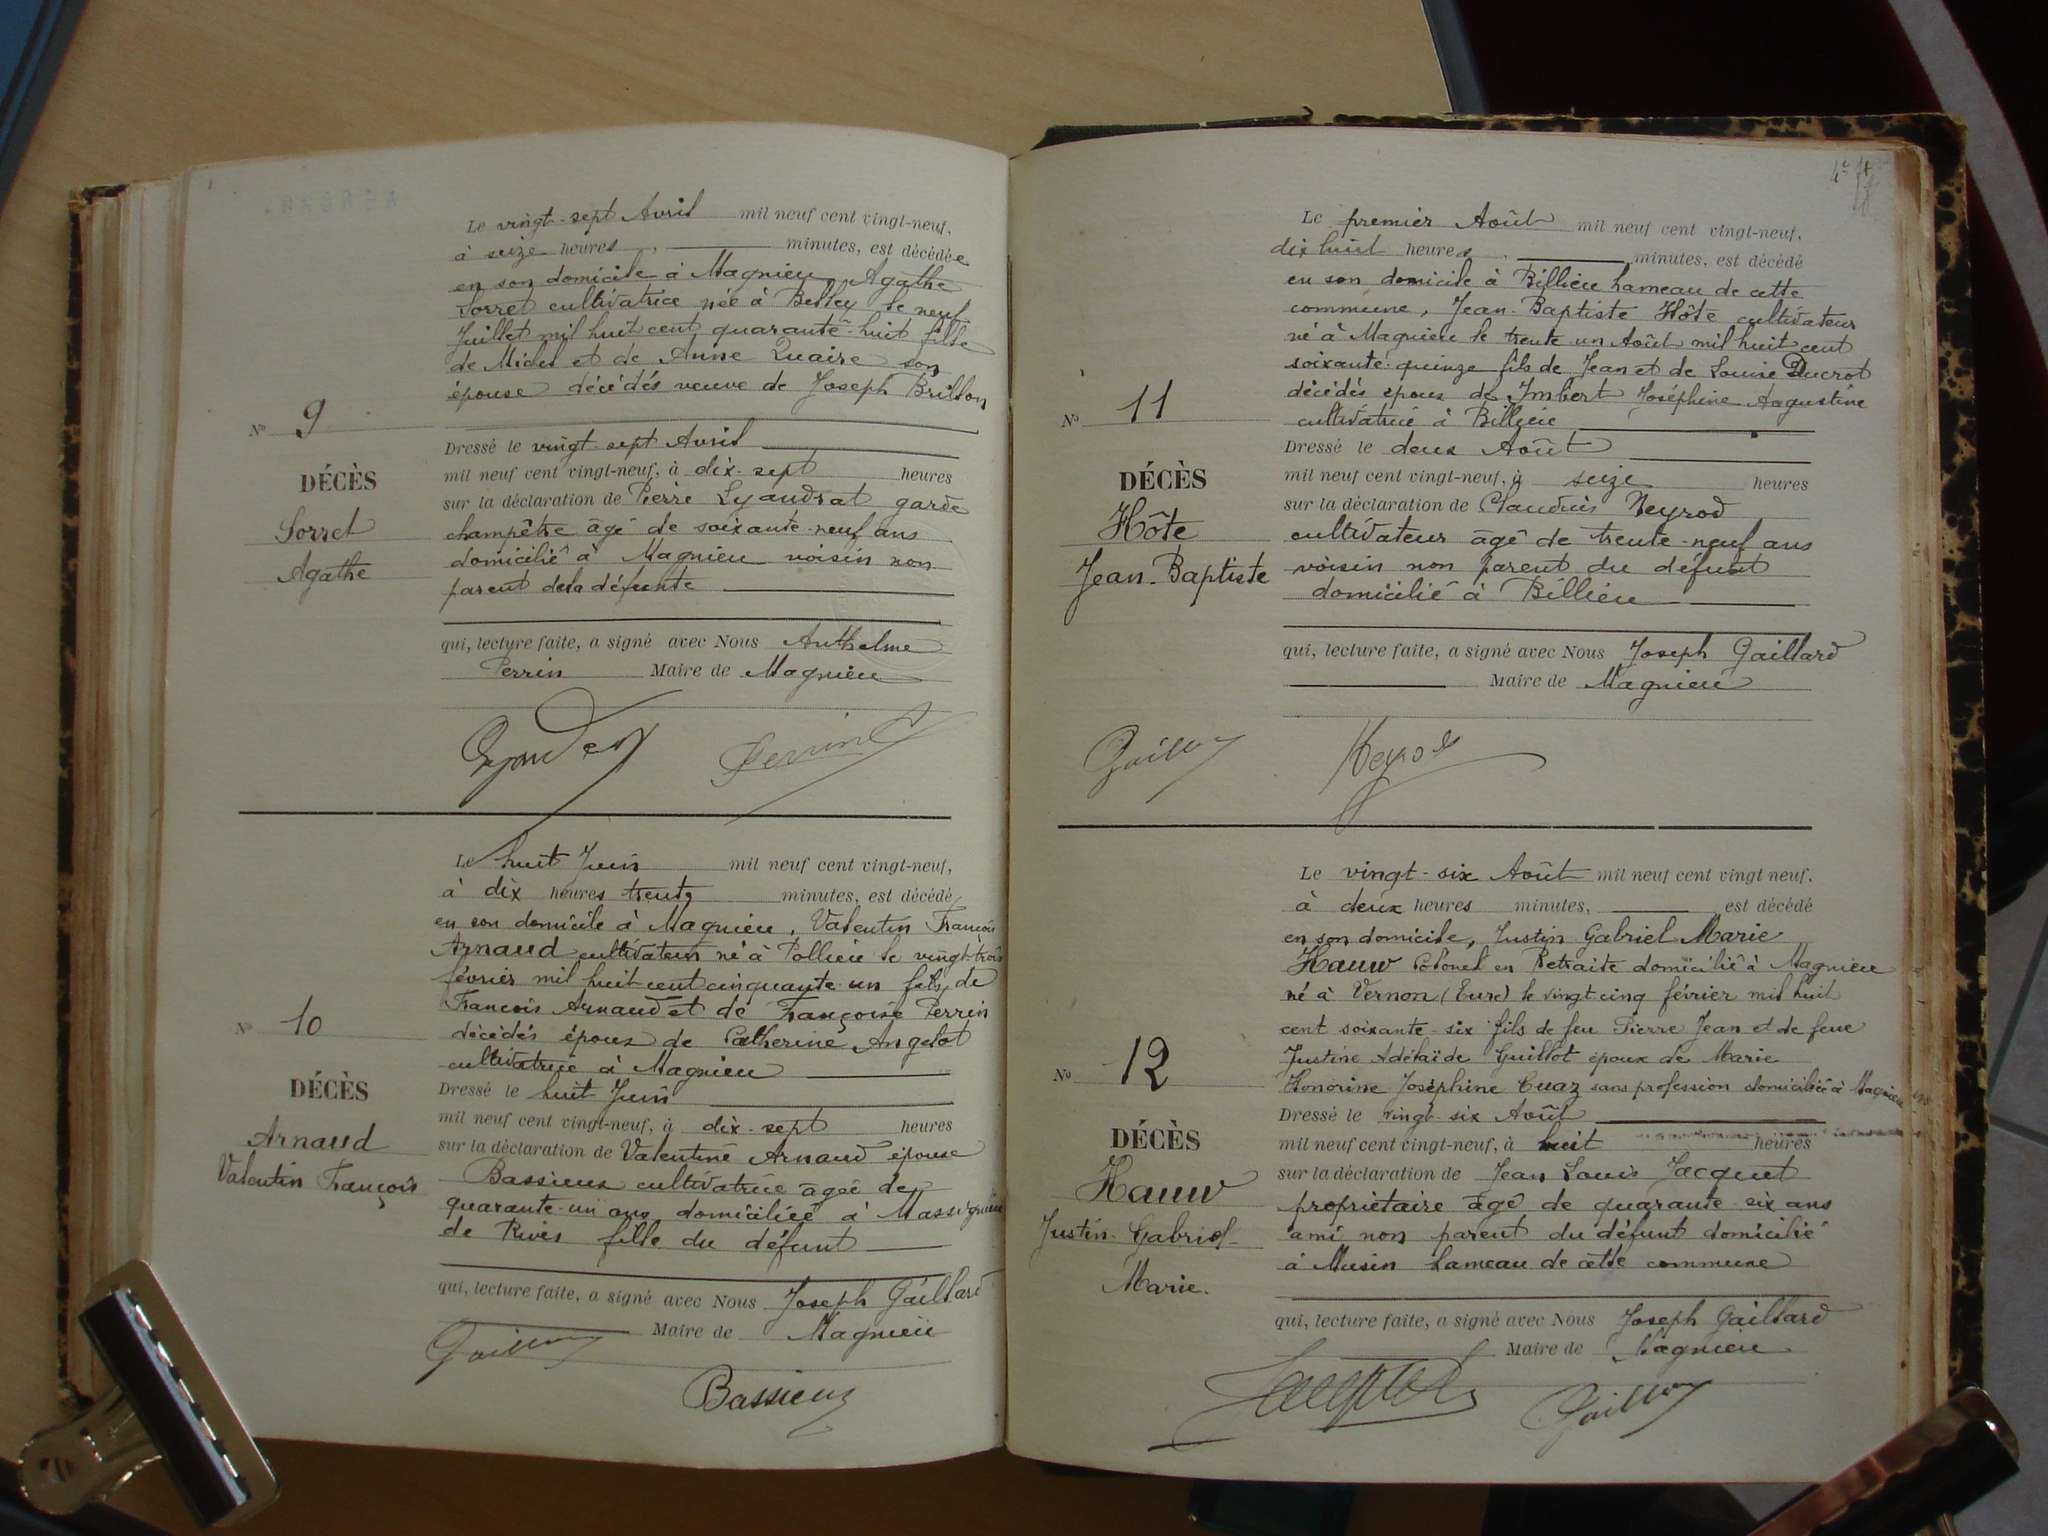 Le vingt-sept Avril mil neuf cent vingt-neuf,
à seize heures, minutes, est décédée
en son domicile à Magnieu Agathe
Sorret cultivatrice née à Belley le neuf
Juillet mil huit cent quarante-huit fille
de Michel et de Anne Quaire son
épouse décédés veuve de Joseph Brillon
No 9
Dressé le vingt-sept Avril
mil neuf cent vingt-neuf, à dix-sept heures
DÉCÈS
sur la déclaration de Pierre Lyaudrat garde
Sorret
champêtre âgé de soixante-neuf ans
Agathe
domicilié à Magnieu voisin non
parent de la défunte
qui, lecture faite, a signé avec Nous Anthelme
Perrin Maire de Magnieu
Perrin
Le huit Juin mil neuf cent vingt-neuf,
à dix heures trente minutes, est décédé
en son domicile à Magnieu, Valentin François
Arnaud cultivateur né à Pollieu le vingt-trois
février mil huit cent cinquante-un fils de
François Arnaud et de Françoise Perrin
No 10
décédés époux de Catherine Angelot
cultivatrice à Magnieu
DÉCÈS
Dressé le huit Juin
mil neuf cent vingt-neuf, à dix-sept heures
Arnaud
sur la déclaration de Valentine Arnaud épouse
Valentin François
Bassieux cultivatrice âgée de
quarante-un ans domiciliée à Massignieu
de Rives fille du défunt
qui, lecture faite, a signé avec Nous Joseph Gaillard
Maire de Magnieu
Bassieux
Le premier Août mil neuf cent vingt-neuf,
dix huit heures, minutes, est décédé
en son domicile à Billieu hameau de cette
commune, Jean-Baptiste Hôte cultivateur
né à Magnieu le trente un Août mil huit cent
soixante-quinze fils de Jean et de Louise Ducrot
décédés époux de Imbert Joséphine Augustine
No 11
cultivatrice à Billieu
Dressé le deux Août
DÉCÈS
mil neuf cent vingt-neuf, à seize heures
sur la déclaration de Claudius Neyrod
Hôte
cultivateur âgé de trente-neuf ans
Jean-Baptiste
voisin non parent du défunt
domicilié à Billieu
qui, lecture faite, a signé avec Nous Joseph Gaillard
Maire de Magnieu
Le vingt-six Août mil neuf cent vingt neuf,
à deux heures minutes, est décédé
en son domicile, Justin Gabriel Marie
Hauw Colonel en Retraite domicilié à Magnieu
né à Vernon (Eure) le vingt cinq février mil huit
cent soixante-six fils de feu Pierre Jean et de feue
Justine Adélaïde Guillot époux de Marie
No 12
Honorine Joséphine Cuaz sans profession domiciliée à Magnieu
Dressé le vingt-six Août
DÉCÈS
mil neuf cent vingt-neuf, à huit heures
Hauw
sur la déclaration de Jean Louis Jacquet
propriétaire âgé de quarante-six ans
Justin-Gabriel-
ami non parent du défunt domicilié
Marie.
à Musin hameau de cette commune
qui, lecture faite, a signé avec Nous Joseph Gaillard
Maire de Magnieu